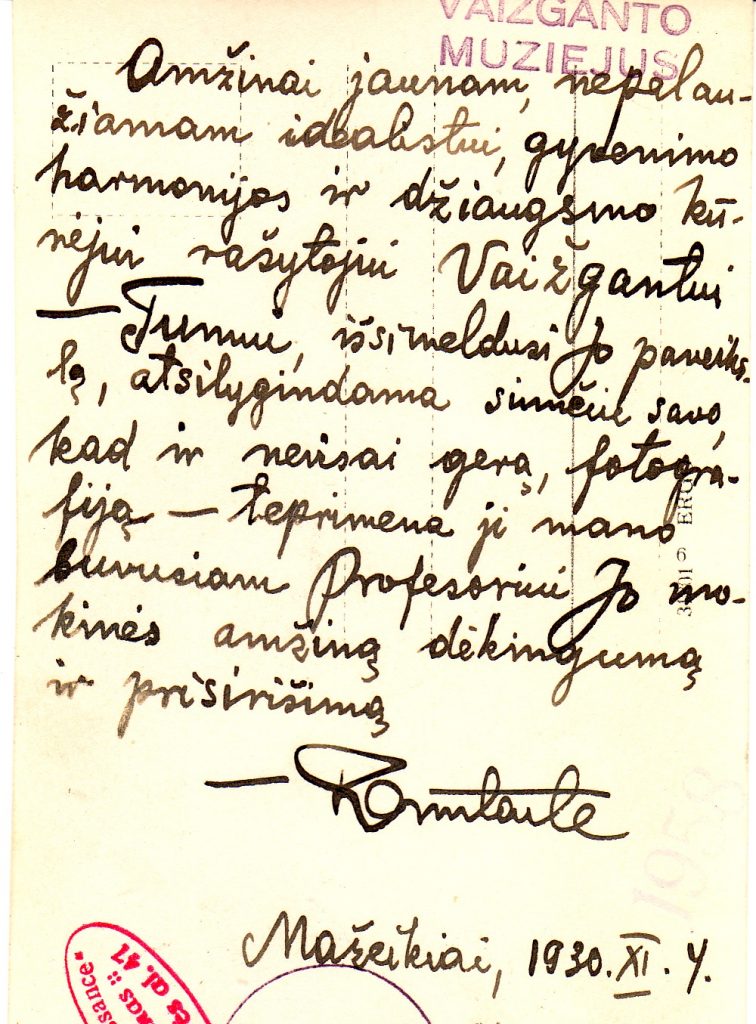 VAIŽGANTO
MUZIEJUS
Amžinai jaunam, nepalau-
žiamam idealistui, gyvenimo
harmonijos ir džiaugsmo kū-
rėjui rašytojui Vaižgantui
— Tumui, išsimeldusi Jo paveiks-
lą, atsilygindama siunčiu savo,
kad ir nevisai gerą, fotogra-
fiją — teprimena ji mano
buvusiam Profesoriui Jo mo-
kinės amžiną dėkingumą
ir prisirišimą
Mažeikiai, 1930.XI.4.
al. 47
1958